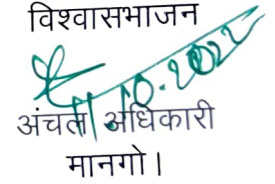 विश्वासभाजन
11.10.2022
अंचल अधिकारी
मानगो।